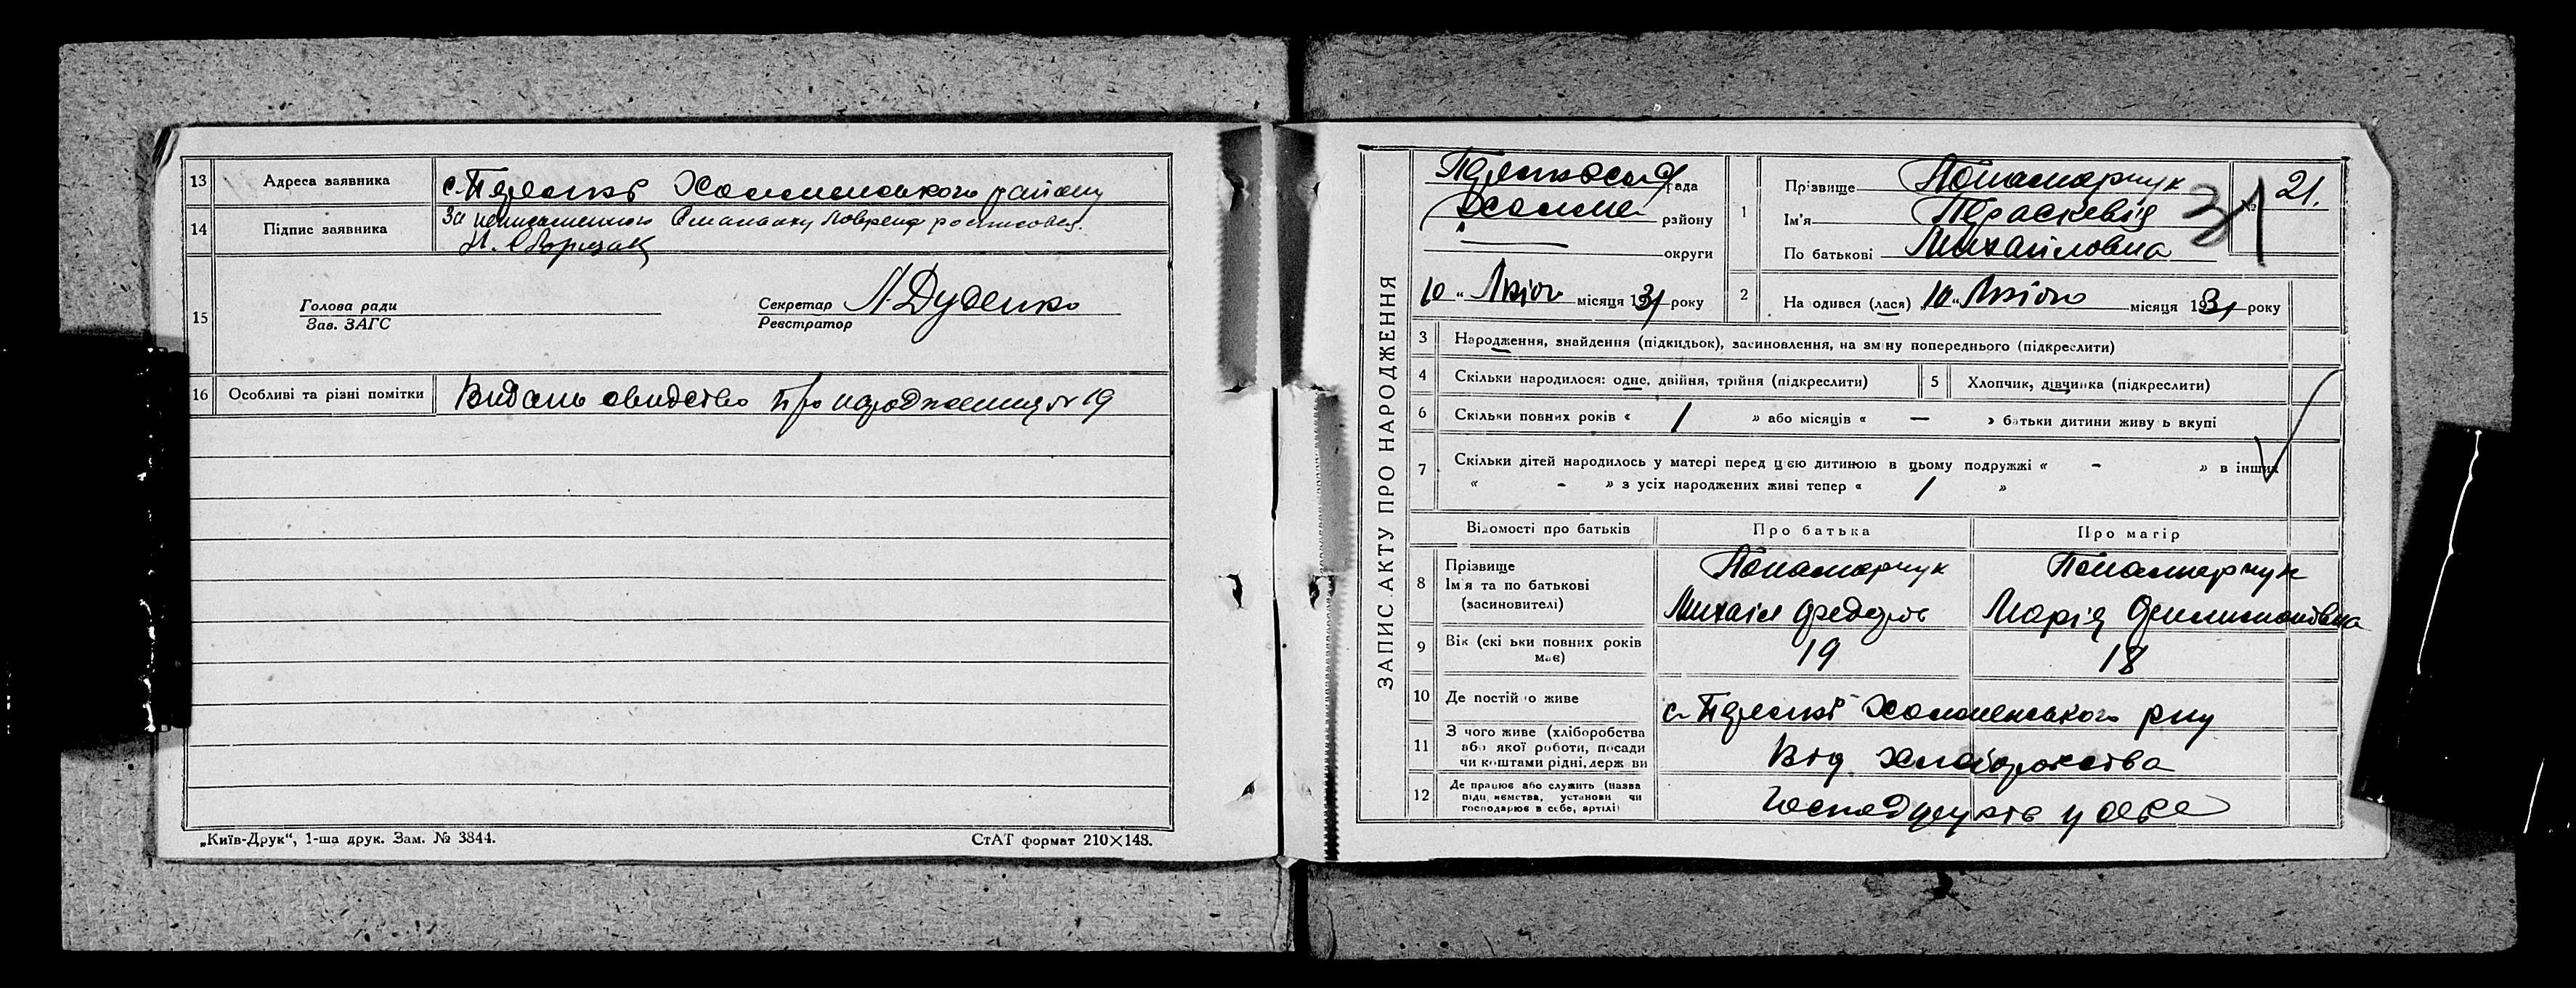 13 Адреса заявника с. Підлипкі Холминського району
14 Підпис заявника За неписьменною розписовся.
15 Голова ради
Зав. ЗАГС
Секретар Л. Дуденко
Реєстратор
16 Особливі та різні помітки Видано свидєтво про народження № 19
„Київ-Друк“, 1-ша друк. Зам. № 3844.
СтАТ формат 210×148.
ЗАПИС АКТУ ПРО НАРОДЖЕННЯ
рада
району
округи
10 „ Лютого місяця 1931 року
1 Прізвище Понамарчук
Ім'я Параскевія
По батькові Михайловна
№ 21.
31
2 На одився (лася) „10„ Лютого місяця 1931 року
3 Народження, знайдення (підкидьок), засиновлення, на зміну попереднього (підкреслити)
4 Скільки народилося: одне, двійня, трійня (підкреслити)
5 Хлопчик, дівчинка (підкреслити)
6 Скільки повних років « 1 » або місяців « — » батьки дитини живу ь вкупі
7 Скільки дітей народилось у матері перед цією дитиною в цьому подружжі « - » в інших
« - » з усіх народжених живі тепер « 1 »
Відомості про батьків Про батька Про матір
8 Прізвище
Ім'я та по батькові
(засиновителі)
Понамарчук
Михаіл Федоров
Понамарчук
Марія
9 Вік (скі ьки повних років має) 19 18
10 Де постій о живе с. Підлипкі Холминського р-ну
11 З чого живе (хліборобства
або якої роботи, посади
чи коштами рідні, держ ви
Від хліборобства
12 Де працює або служить (назва
підп иємства, установи чи
господарює в себе, артілі)
Господарують у себе